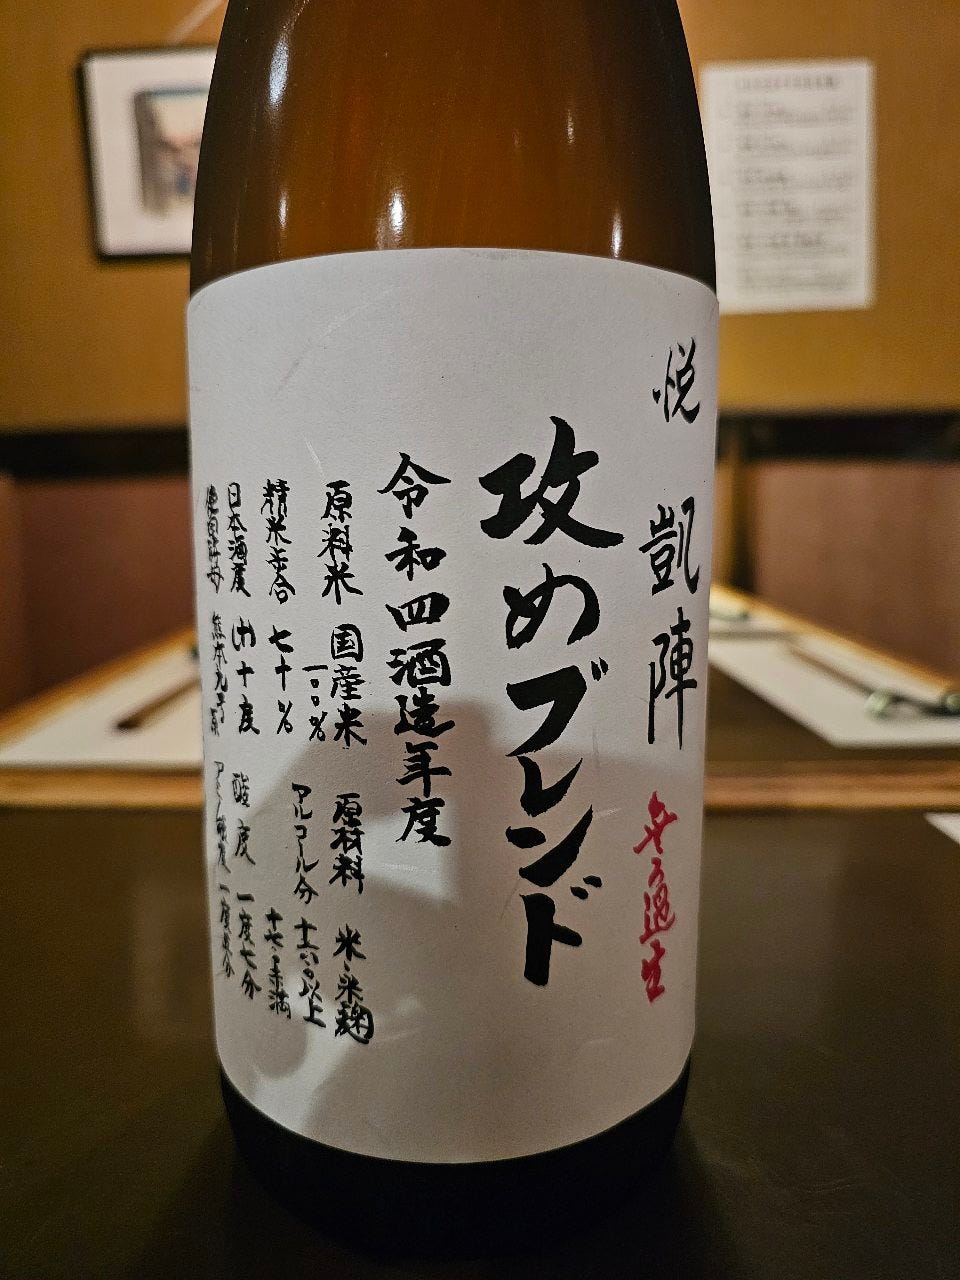 悦凱陣
無ろ過生
攻めブレンド
令和四酒造年度
原料米 国産米 一〇〇% 原材料 米・米麹
精米歩合 七十% アルコール分 十六・〇以上 十七・〇未満
日本酒度 (+)十度 酸度 一度七分
使用酵母 熊本九号系 アミノ酸度